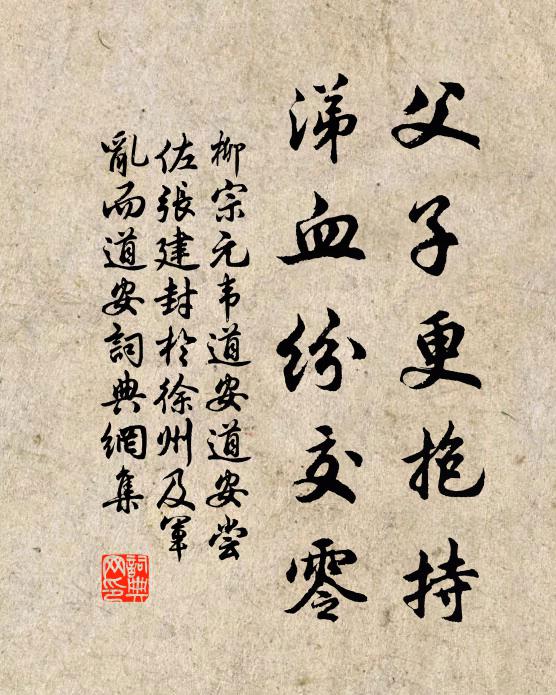 父子更抱持
涕血紛交零
柳宗元韦道安道安尝
佐張建封於徐州及軍
亂而道安詞典網集
詞典网印